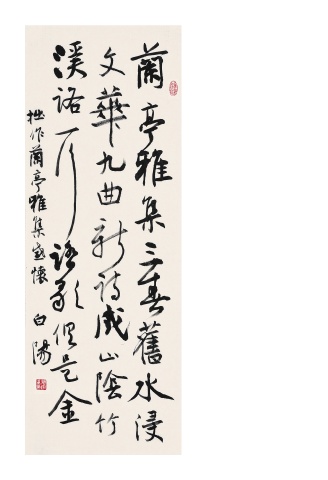 蘭亭雅集三春舊水浸
文華九曲新詩成山陰竹
溪路一行語是金
拙作蘭亭雅集感懷 白陽